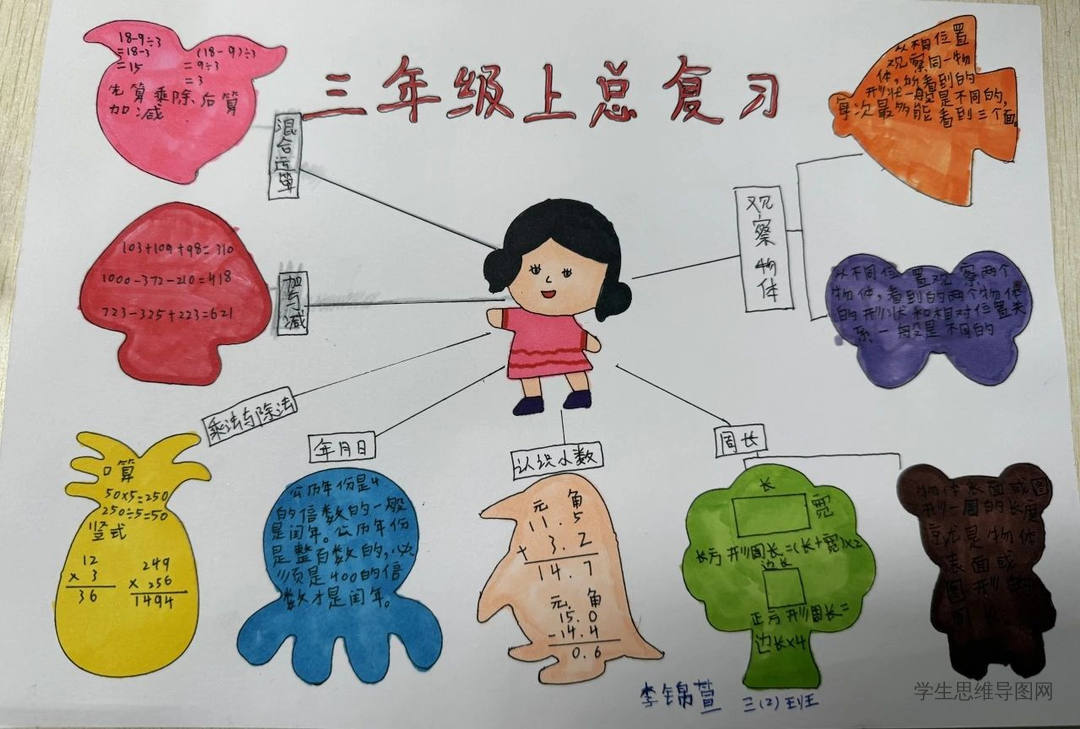 三年级上总复习
18-9÷3
=18-3
=15
(18-9)÷3
=9÷3
=3
先算乘除后算
加减
混合运算
103+109+98=310
1000-372-210=418
723-325+223=621
加与减
乘法与除法
口算
50×5=250
250÷5=50
竖式
12
× 3
36
249
× 256
1494
年月日
公历年份是4
的倍数的一般
是闰年。公历年份
是整百数的,必
须是400的倍
数才是闰年。
认识小数
元 角
11.5
+ 3.2
14.7
元 角
15.0
-14.4
0.6
周长
长
宽
长方形周长=(长+宽)×2
边长
正方形周长=
边长×4
物体表面或图
形一周的长度
就是物体
表面或
图形的
周
观察物体
从相位置
观察同一物
体,所看到的
形状一般是不同的,
每次最多能看到三个面
从不同位置观察两个
物体,看到的两个物体
的形状和相对位置关
系一般是不同的
李锦萱 三(2)班
学生思维导图网